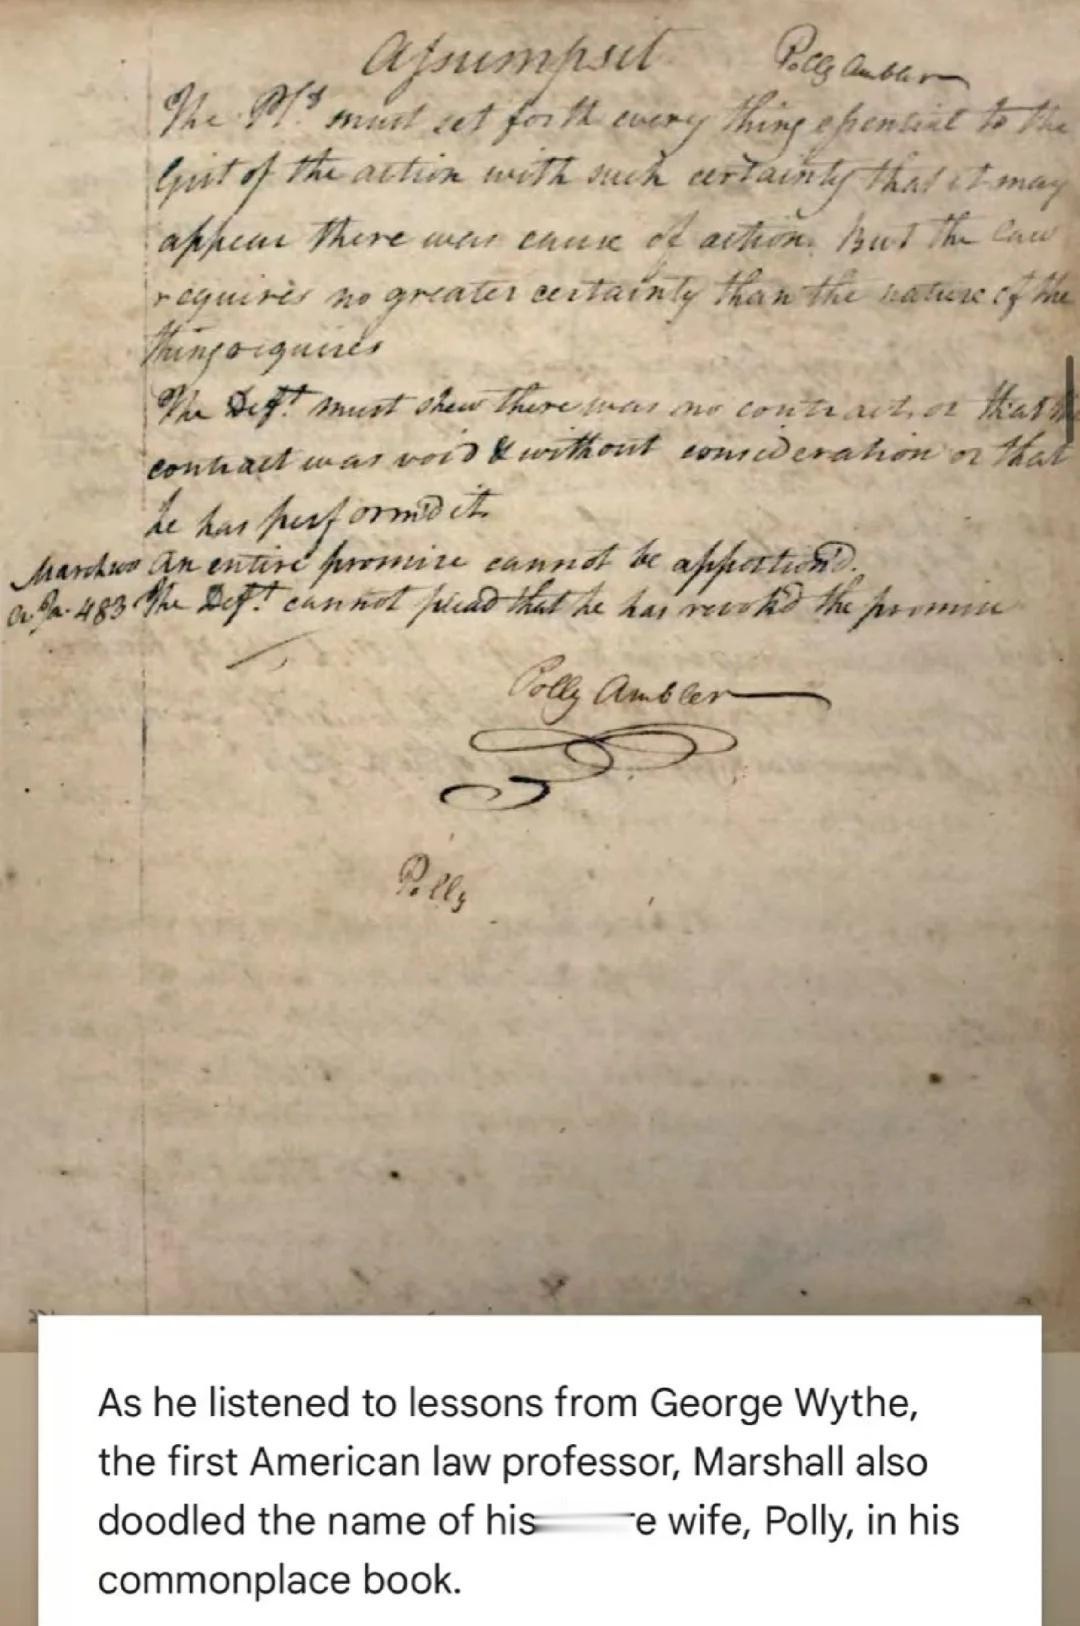 Assumpsit Polly Ambler
The Plt. must set forth every thing essential to the
Gist of the action with such certainty that it may
appear there was cause of action. But the law
requires no greater certainty than the nature of the
thing requires
The Deft. must shew there was no contract, or that the
contract was void & without consideration or that
he has perform'd it.
An entire promise cannot be apportion'd.
483 The Deft. cannot plead that he has revok'd the promise
Polly Ambler
Polly
As he listened to lessons from George Wythe,
the first American law professor, Marshall also
doodled the name of his e wife, Polly, in his
commonplace book.